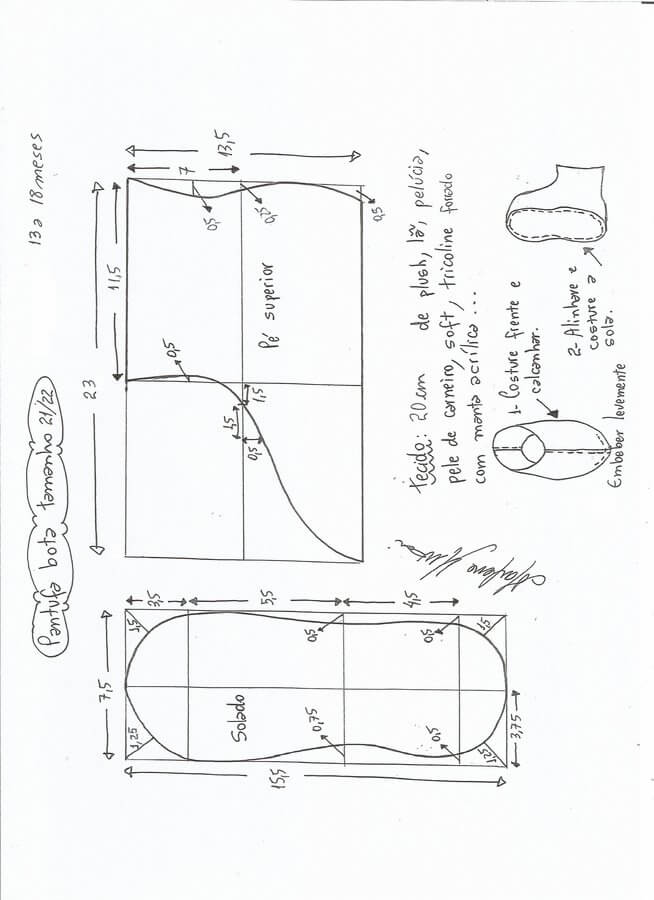 Pantufa bota tamanho 21/22
13 a 18 meses
23
11,5
13,5
7
0,5
0,75
0,5
0,5
1,5
1,5
0,5
Pé superior
7,5
3,5
5,5
4,5
1,5
1,25
0,5
0,5
1,5
Solado
0,75
0,5
1,25
3,75
15,5
Tecido: 20cm de plush, lã, pelúcia,
pele de carneiro, soft, tricoline forrado
com manta acrílica...
1- Costure frente e
calcanhar.
2- Alinhave e
costure a
sola.
Embeber levemente